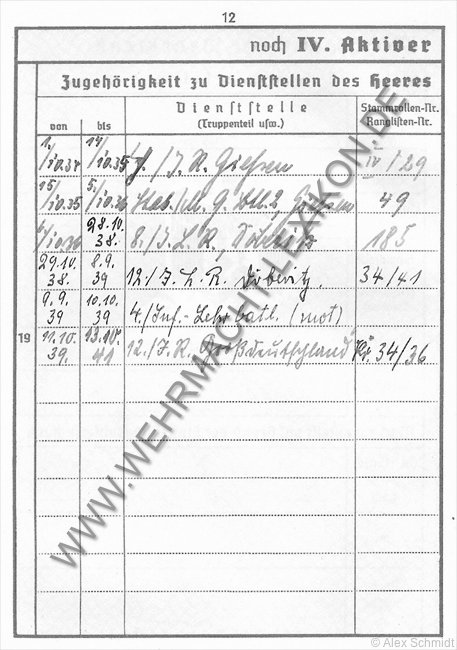 12
noch IV. Aktiver
Zugehörigkeit zu Dienststellen des Heeres
von bis Dienststelle (Truppenteil usw.) Stammrollen-Nr. Ranglisten-Nr.
1./10.34 14/10.35 /J. R. Giessen IV/29
15/10.35 5./10.36 49
/10.36 28.10.38. 8./J. L. R. Döberitz 185
29.10.38. 8.9.39 12./J. L. R. Döberitz. 34/41
9.9.39 10.10.39 4./Inf.-Lehr batl. (mot)
19 11.10.39. 13.10.41 12./J.R. Großdeutschland Kr. 34/36
WWW.WEHRMACHT-LEXIKON.DE
© Alex Schmidt